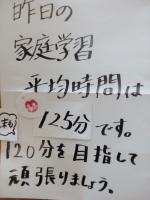 昨日の
家庭学習
平均時間は
125分です。
120分を目指して
頑張りましょう。